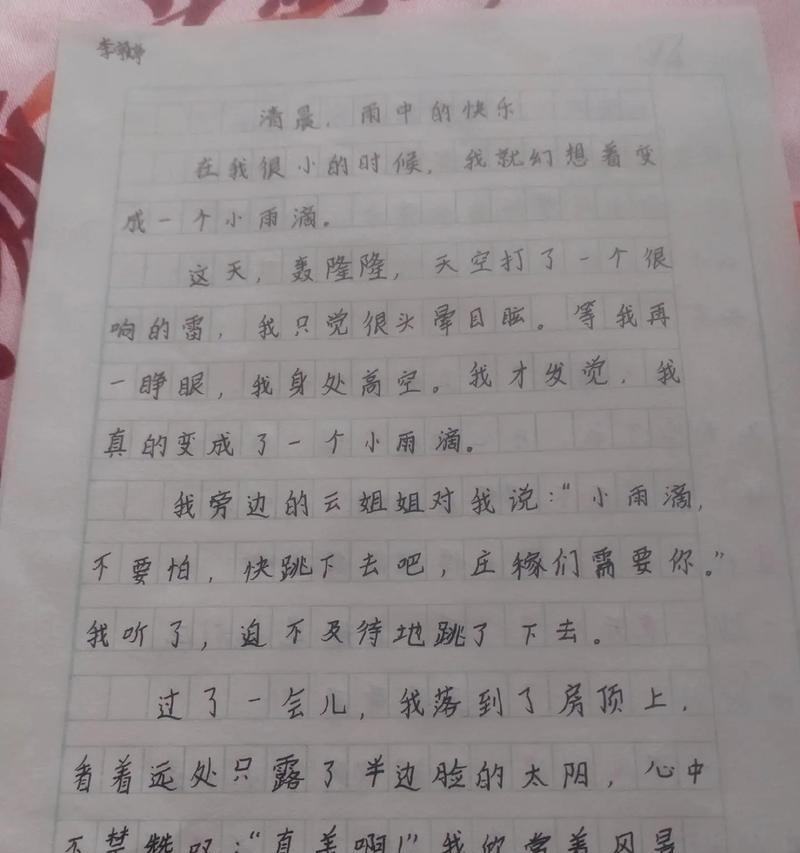 清晨，雨中的快乐
在我很小的时候，我就幻想着变
成一个小雨滴。
这天，轰隆隆，天空打了一个很
响的雷，我只觉很头晕目眩。等我再
一睁眼，我身处高空。我才发觉，我
真的变成了一个小雨滴。
我旁边的云姐姐对我说：“小雨滴，
不要怕，快跳下去吧，庄稼们需要你。”
我听了，迫不及待地跳了下去。
过了一会儿，我落到了房顶上，
看着远处只露了半边脸的太阳，心中
不禁赞叹：“真美啊！”我欣赏着风景